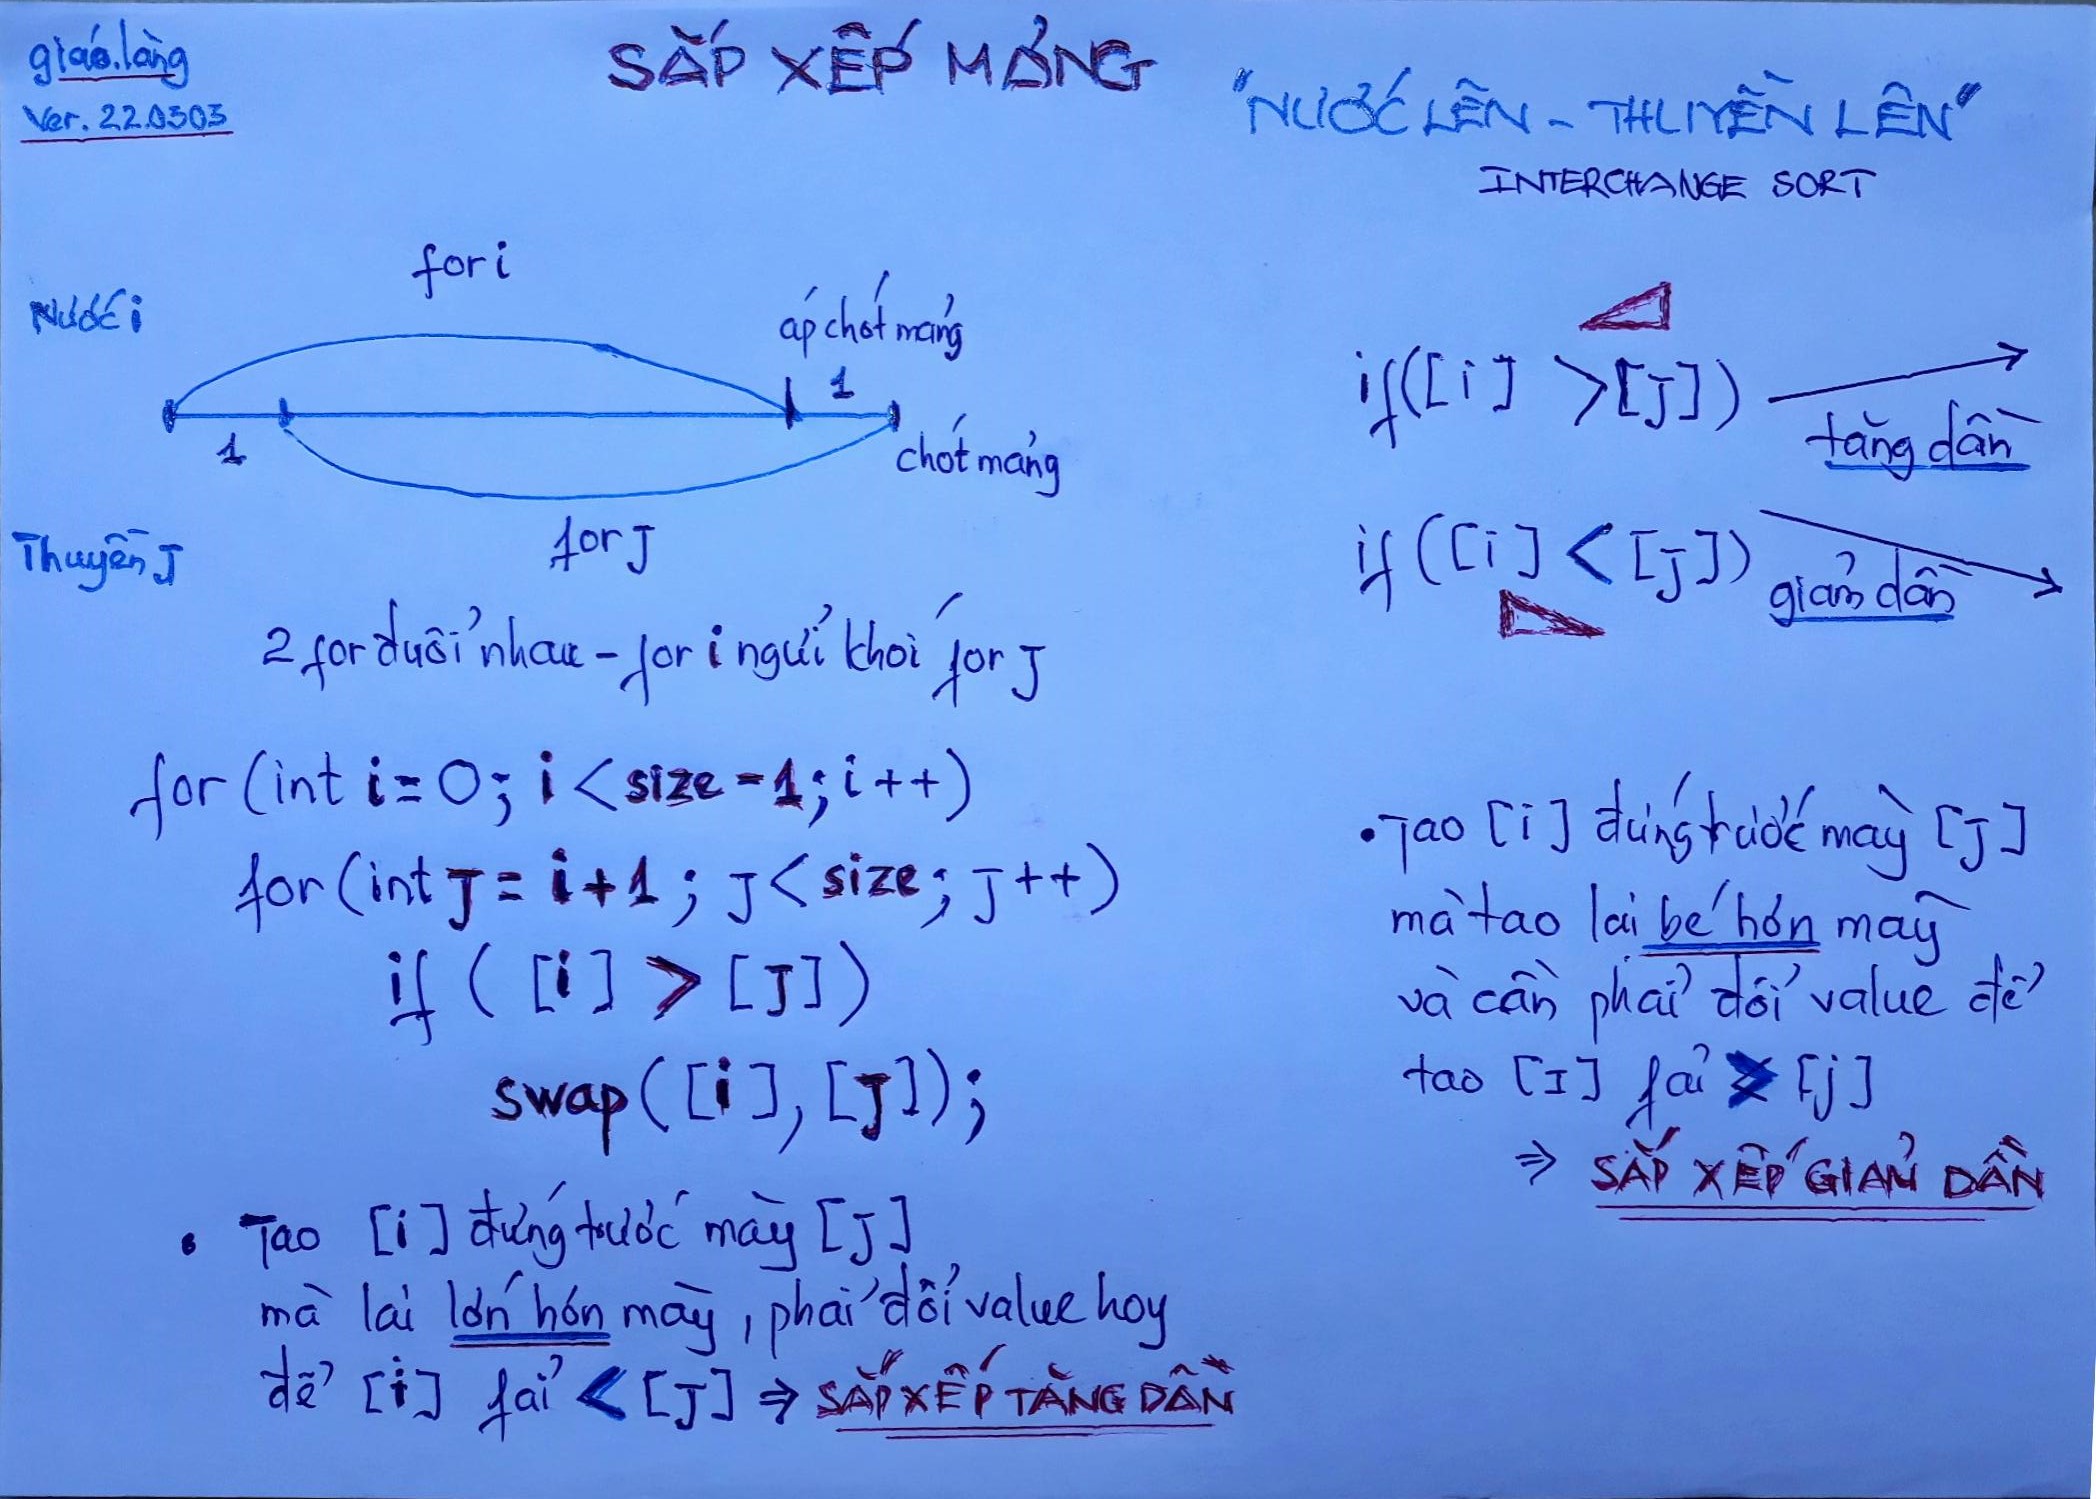 giáo.làng
Ver. 22.0303
SẮP XẾP MẢNG
"NƯỚC LÊN - THUYỀN LÊN"
INTERCHANGE SORT
for i
Nước i
áp chót mảng
1
1
chót mảng
for J
Thuyền J
2 for đuổi nhau - for i ngửi khói for J
for (int i = 0; i < size - 1; i++)
for (int J = i + 1; J < size; J++)
if ( [i] > [J])
swap([i], [J]);
• Tao [i] đứng trước mày [J]
mà lại lớn hơn mày, phải đổi value hoy
để [i] fải < [J] ⇒ SẮP XẾP TĂNG DẦN
if([i] > [J])
tăng dần
if ([i] < [J])
giảm dần
• Tao [i] đứng trước mày [J]
mà tao lại bé hơn mày
và cần phải đổi value để
tao [I] fải > [j]
⇒ SẮP XẾP GIẢM DẦN